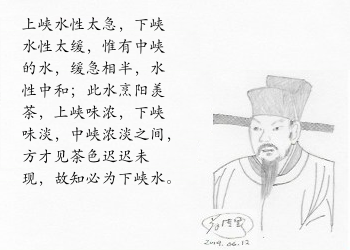 上峡水性太急，下峡
水性太缓，惟有中峡
的水，缓急相半，水
性中和；此水烹阳羡
茶，上峡味浓，下峡
味淡，中峡浓淡之间，
方才见茶色迟迟未
现，故知必为下峡水。
2019.06.12